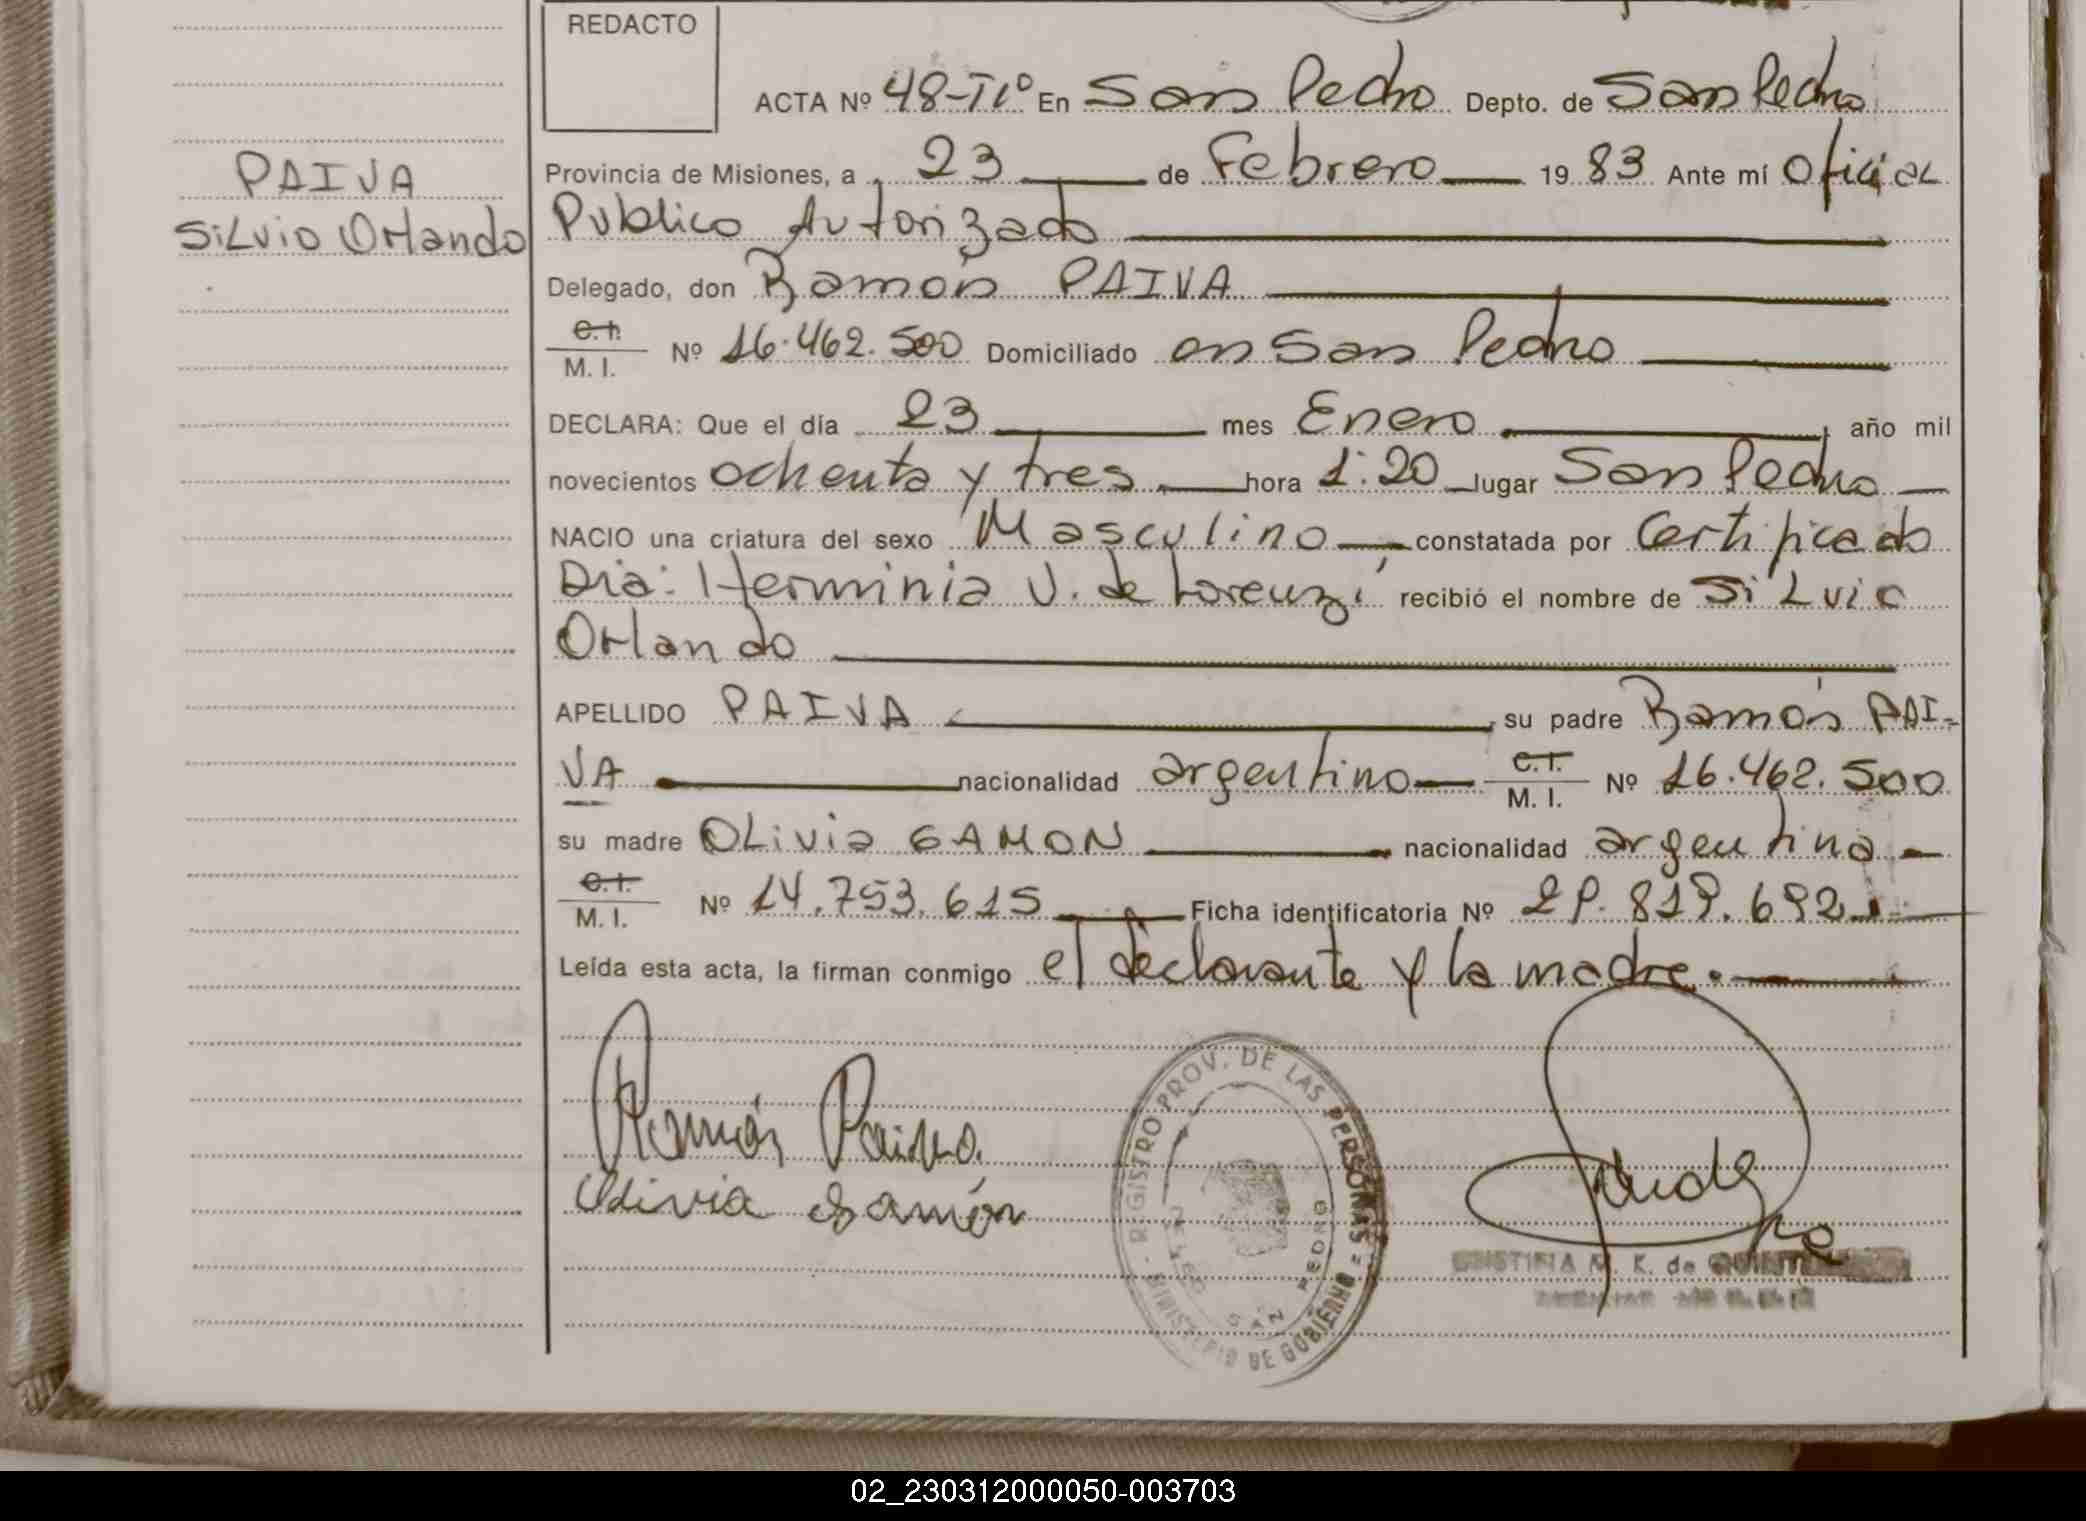 REDACTO
ACTA Nº 48-Tº En San Pedro Depto. de San Pedro
PAIVA
Silvio Orlando
Provincia de Misiones, a 23 de Febrero 19 83 Ante mí Oficial
Publico Autorizado
Delegado, don Ramón PAIVA
C.I. M. I. Nº 16.462.500 Domiciliado en San Pedro
DECLARA: Que el día 23 mes Enero año mil
novecientos ochenta y tres hora 1:20 lugar San Pedro
NACIO una criatura del sexo Masculino constatada por Certificado
Dra: Herminia V. de Lorenzi recibió el nombre de Silvio
Orlando
APELLIDO PAIVA su padre Ramón PAI-
VA nacionalidad argentino C.I. M. I. Nº 16.462.500
su madre Olivia GAMON nacionalidad argentina
C.I. M. I. Nº 14.753.615 Ficha identificatoria Nº 29.819.692
Leída esta acta, la firman conmigo el declarante y la madre.
Ramón Paiva
Olivia Gamón
REGISTRO PROV. DE LAS PERSONAS
SAN PEDRO
MINISTERIO DE GOBIERNO
CRISTINA M. K. de
02_230312000050-003703